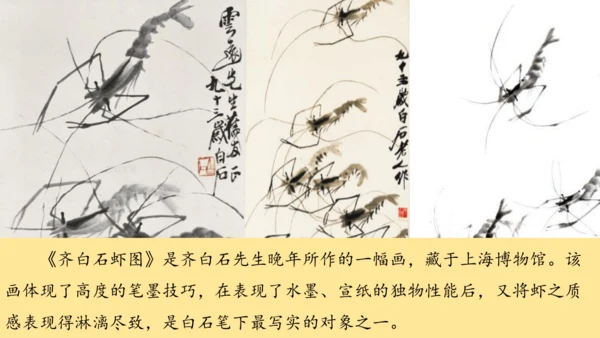 雲遠先生
九十三歲白石
九十三歲白石老人作
《齐白石虾图》是齐白石先生晚年所作的一幅画，藏于上海博物馆。该
画体现了高度的笔墨技巧，在表现了水墨、宣纸的独物性能后，又将虾之质
感表现得淋漓尽致，是白石笔下最写实的对象之一。